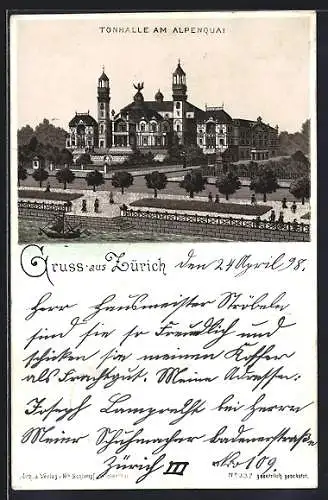 TONHALLE AM ALPENQUAI
Gruss aus Zürich den 24 April 98.
Herr Hausmeister Ströbele
sind sie so Freundlich und
schicken sie meinen Koffer
als Frachtgut. Meine Adresse:
Joseph Lamprecht bei Herrn
Meier Schuhmacher Badenerstraße
Zürich III No 109.
gesetzlich geschützt.